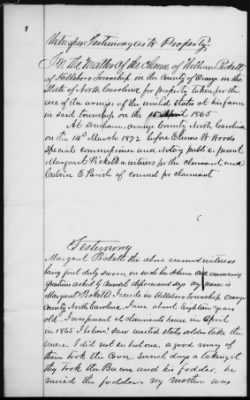 Witnesses Testimony as to Property
In the Matter of the Claim of William Rickett
of Hillsboro Township in the County of Orange in the
State of North Carolina for property taken for the
use of the armies of the united states at his farm
in said township on the April 1865
At Durham, orange County North Carolina
on the 14th March 1872 before W Woods
Special commissioner and Notary public
Margaret Rickett a witness for the claimant and
E Parish of counsel for claimant
Testimony
Margaret Rickett the above named witness
being first duly sworn on oath
question asked by Counsel deposes and says my name is
Margaret Rickett I reside in Hillsboro Township orange
County North Carolina I am about eighteen years
old. I was present at claimants house in April
in 1865 I believe I saw united states soldiers take the
mare. I did not see but one, a good may of
them took the Corn several days a taking it
they took the Bacon and his fodder, he
saved the fodder, my Mother was